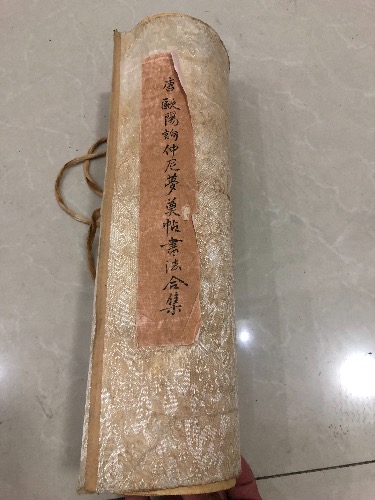 唐歐陽詢仲尼夢奠帖書法合集